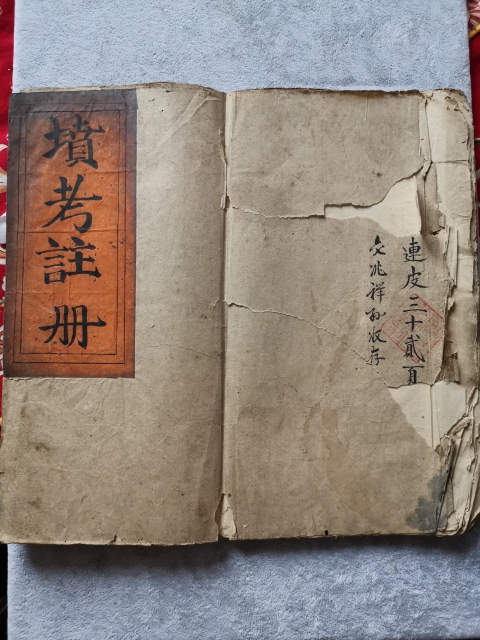 墳考註册
連皮三十貳頁
文兆祥孙收存